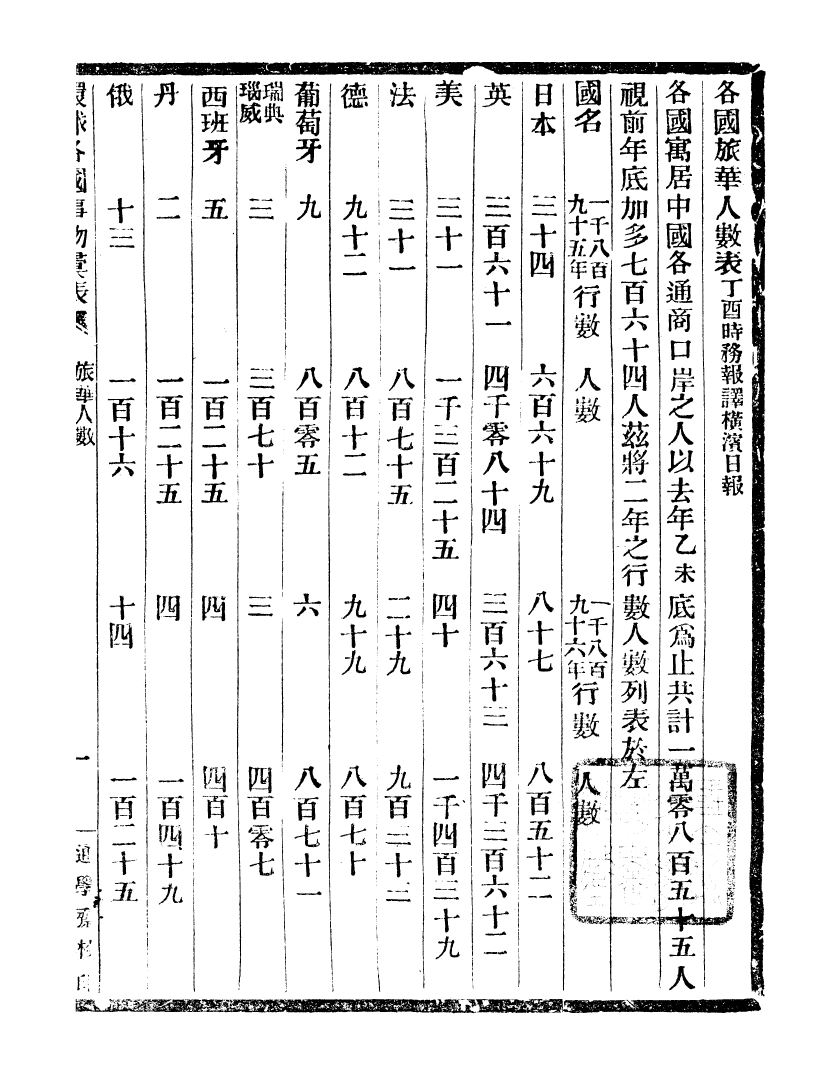 各國旅華人數表丁酉時務報譯橫濱日報
各國寓居中國各通商口岸之人以去年乙未底爲止共計一萬零八百五十五人
視前年底加多七百六十四人茲將二年之行數人數列表於左
國名 一千八百九十五年行數 人數 一千八百九十六年行數 人數
日本 三十四 六百六十九 八十七 八百五十二
英 三百六十一 四千零八十四 三百六十三 四千三百六十二
美 三十一 一千三百二十五 四十 一千四百三十九
法 三十一 八百七十五 二十九 九百三十三
德 九十二 八百十二 九十九 八百七十
葡萄牙 九 八百零五 六 八百七十一
瑞典瑙威 三 三百七十 三 四百零七
西班牙 五 一百二十五 四 四百十
丹 二 一百二十五 四 一百四十九
俄 十三 一百十六 十四 一百二十五
環球各國事物彙表 旅華人數 一 通學齋校